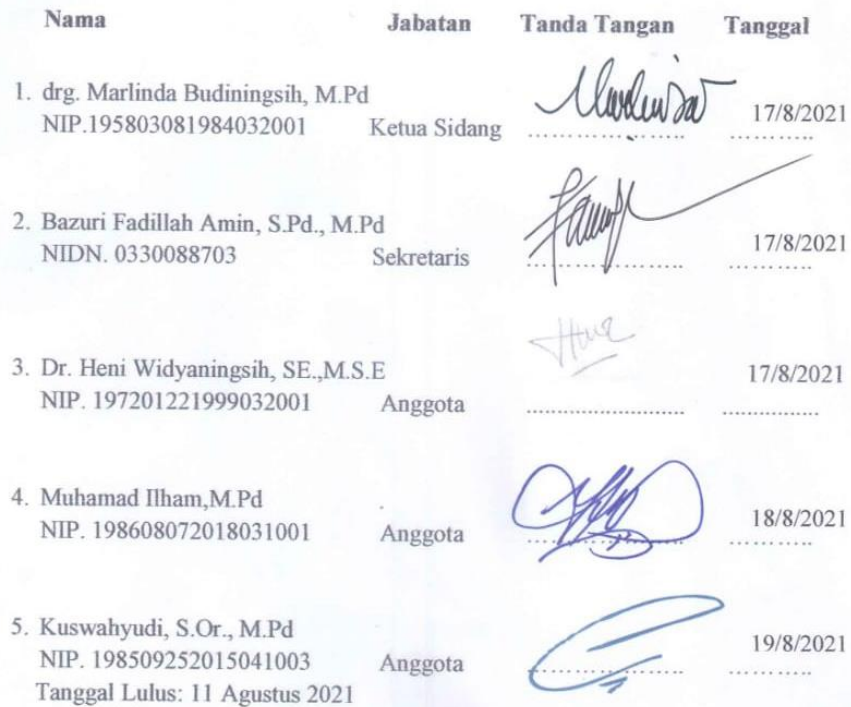 Nama Jabatan Tanda Tangan Tanggal
1. drg. Marlinda Budiningsih, M.Pd
NIP.195803081984032001 Ketua Sidang .................... 17/8/2021
2. Bazuri Fadillah Amin, S.Pd., M.Pd
NIDN. 0330088703 Sekretaris .................... 17/8/2021
3. Dr. Heni Widyaningsih, SE.,M.S.E 17/8/2021
NIP. 197201221999032001 Anggota .................... ............
4. Muhamad Ilham,M.Pd
NIP. 198608072018031001 Anggota .................... 18/8/2021
5. Kuswahyudi, S.Or., M.Pd
NIP. 198509252015041003 Anggota .................... 19/8/2021
Tanggal Lulus: 11 Agustus 2021